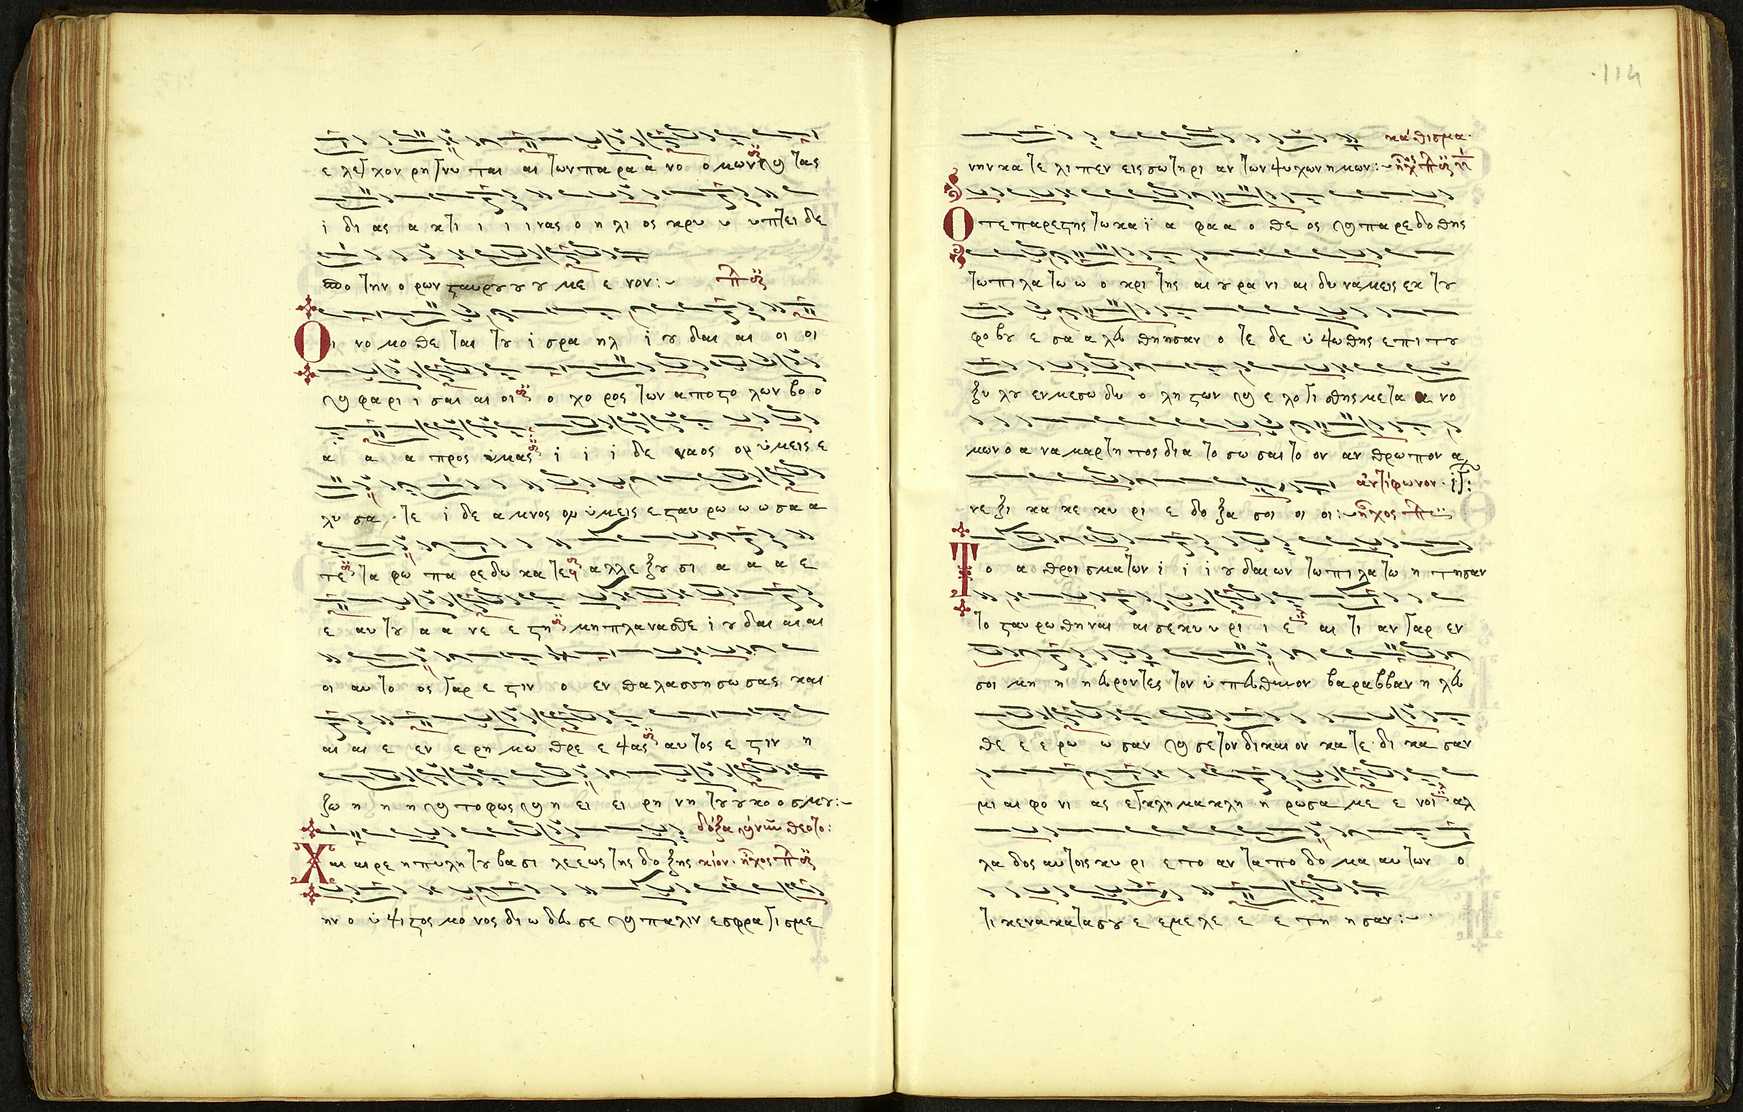 ε λεγχον ρηγνυ ται αι των παρα α νο ο μων και τας
ι δι ας α κτι ι ι ι νας ο η λι ος κρυ υ υπτει δε
σπο την ο ρων σταυρου ου ου με ε νον:~
Οι νο μο θε ται του ι σρα ηλ ι ου δαι αι οι οι
και φαρι ι σαι αι οι ο χο ρος των αποστο λων βο ο
α α α προς υμας ι ι ι δε ναος ον υμεις ε
λυ σα τε ι δε αμνος ον υμεις εσταυ ρω ω ω σα α
τε τα φω παρεδω κατε αλλ εξου σι α α α ε
ε αυτου α α νε ε στη μη πλανασθε ι ου δαι αι αι
οι αυ το ος γαρ ε στιν ο εν θαλασση σω σας και
αι αι ε εν ερη μω θρε ε ψας αυτος ε στιν η
ζω η η η και το φως και η ει ει ρη νη του ου κο ο σμου:~
δόξα και νυν θεοτο:
Χαι αι ρε η πυλη του βασι λε εως της δο ξης κίον. ἦχος πλ β
ην ο υ ψιστος μο νος δι ω δευ σε και παλιν εσφραγισμε
114
κάθισμα.
νην κατε λι πεν εις σωτηρι αν των ψυχων ημων:~ ἦχος πλ β
Οτε παρεστης τω καϊ α φα α ο θε ος και παρεδοθης
τω πιλατω ω ο κρι της αι ουρανι αι δυναμεις εκ του
φοβου ε σα α λευ θη ησαν ο τε δε υ ψωθης επι του
ξυ λου εν μεσω δυ ο ληστων και ελογισθης μετα α νο
μων ο αναμαρτη τος δια το σω σαι το ον αν θρωπον α
αντίφωνον. ιγ:
νε ξι κα κε κυ ρι ε δο ξα σοι οι οι:~ ἦχος πλ β
Το α θροισμα των ι ι ι ουδαιων τω πιλατω η τησαν
το σταυρωθηναι αι σε κυ υ ρι ι ε αι τι αν γαρ εν
σοι μη η η ευροντες τον υ πευθυνον βαραββαν η λευ
θε ε ε ρω ω σαν και σε τον δικαιον κατε δι κα σαν
μι αι φο νι ας εγκλημα κλη η ρωσα με ε νοι αλ
λα δος αυτοις κυ ρι ε το αν ταπο δο μα αυτων ο
τι κενα κατα σου ε εμελε ε ε τη η σαν:~